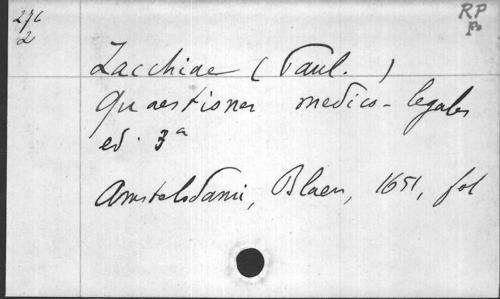 276
2
RP
Zacchiae (Paul.)
Quaestiones medico-legales
ed. 3a
Amstelodami, Blaeu, 1651, fol